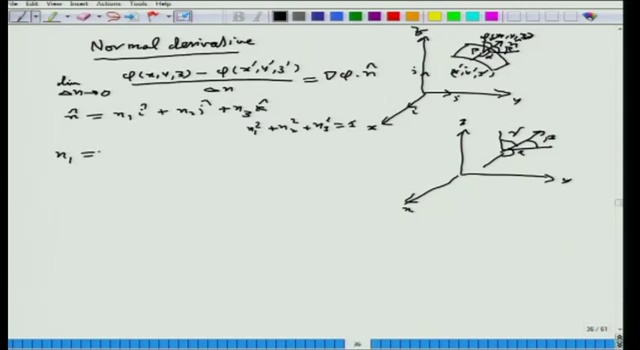 File Edit View Insert Actions Tools Help
Normal derivative
lim Δn→0 φ(x,y,z) − φ(x',y',z') / Δn = ∇φ·n̂
n̂ = n₁ î + n₂ ĵ + n₃ k̂
n₁² + n₂² + n₃² = 1
n₁ =
z
φ(x,y,z)
(x',y',z')
y
x
z
γ
β
α
y
x
36 / 61
36